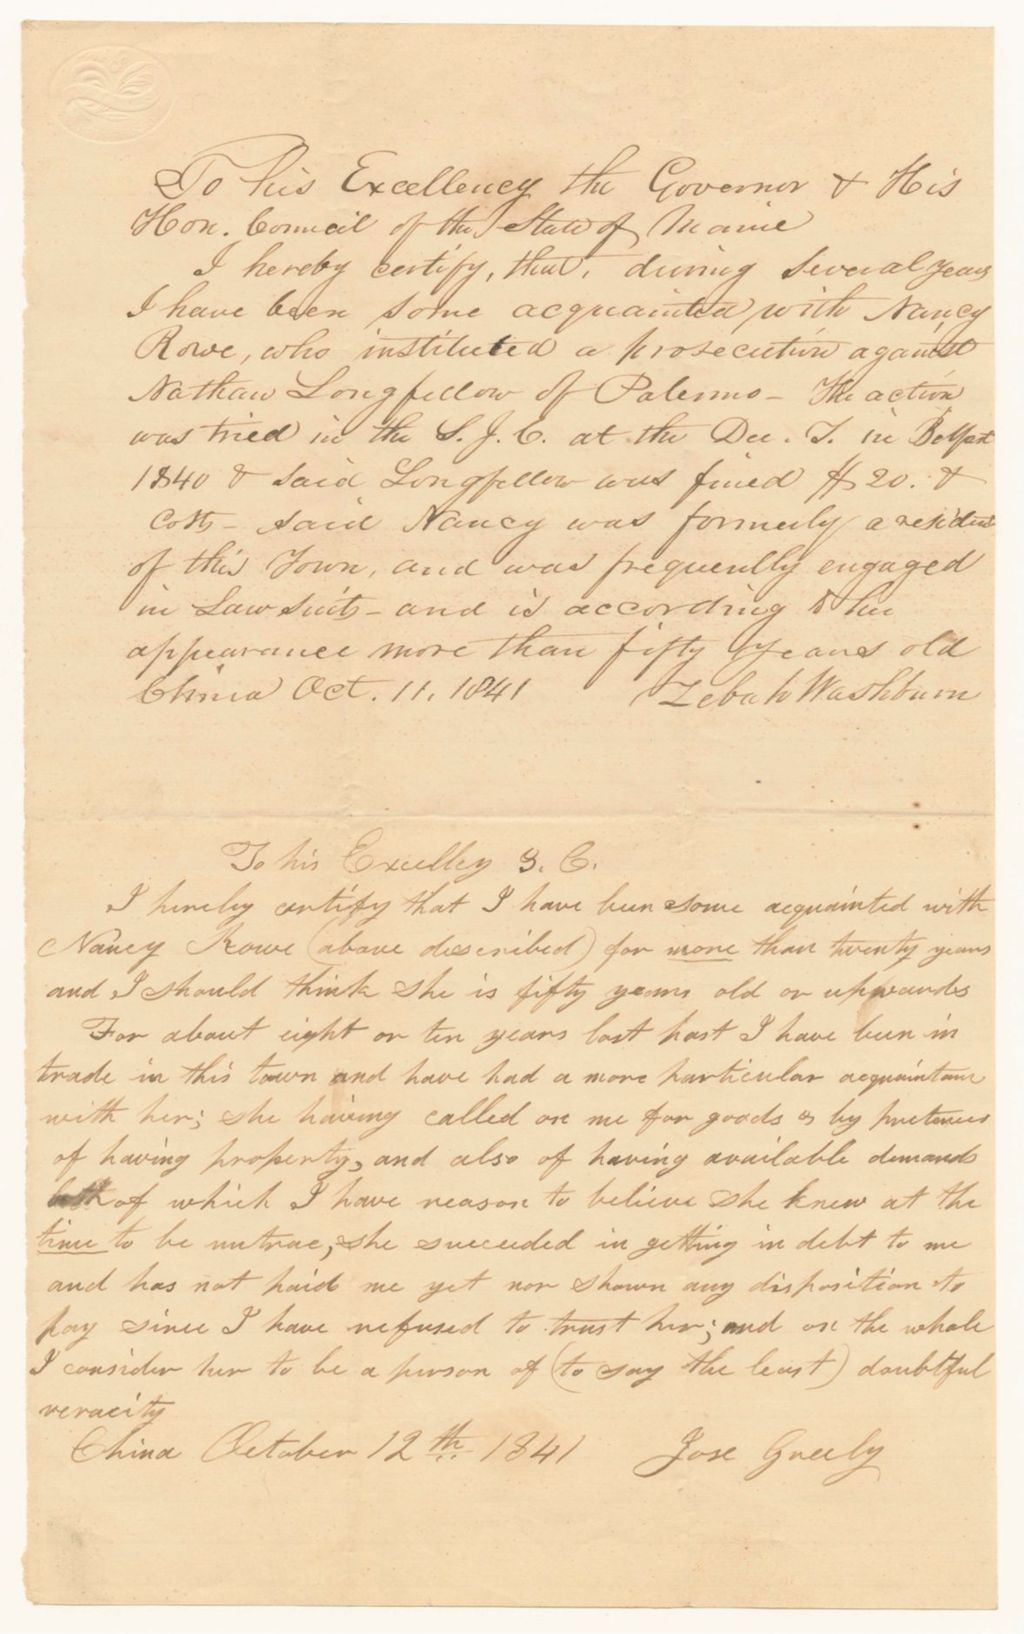 To his Excellency the Governor & His
Hon. Council of the State of Maine
I hereby certify, that, during several years
I have been some acquainted with Nancy
Rowe, who instituted a prosecution against
Nathan Longfellow of Palermo - The action
was tried in the S. J. C. at the Dec. T. in Belfast
1840 & said Longfellow was fined $20. &
Costs - said Nancy was formerly a resident
of this Town, and was frequently engaged
in Law suits - and is according to her
appearance more than fifty years old
China Oct. 11, 1841 Zebah Washburn
To his Excelley &. C.
I hereby certify that I have been some acquainted with
Nancy Rowe (above described) for more than twenty years
and I should think she is fifty years old or upwards
For about eight or ten years last past I have been in
trade in this town and have had a more particular acquaintance
with her; she having called on me for goods & by pretences
of having property, and also of having available demands
both of which I have reason to believe she knew at the
time to be untrue, she succeeded in getting in debt to me
and has not paid me yet nor shown any disposition to
pay since I have refused to trust her; and on the whole
I consider her to be a person of (to say the least) doubtful
veracity
China October 12th 1841 Jose Greely